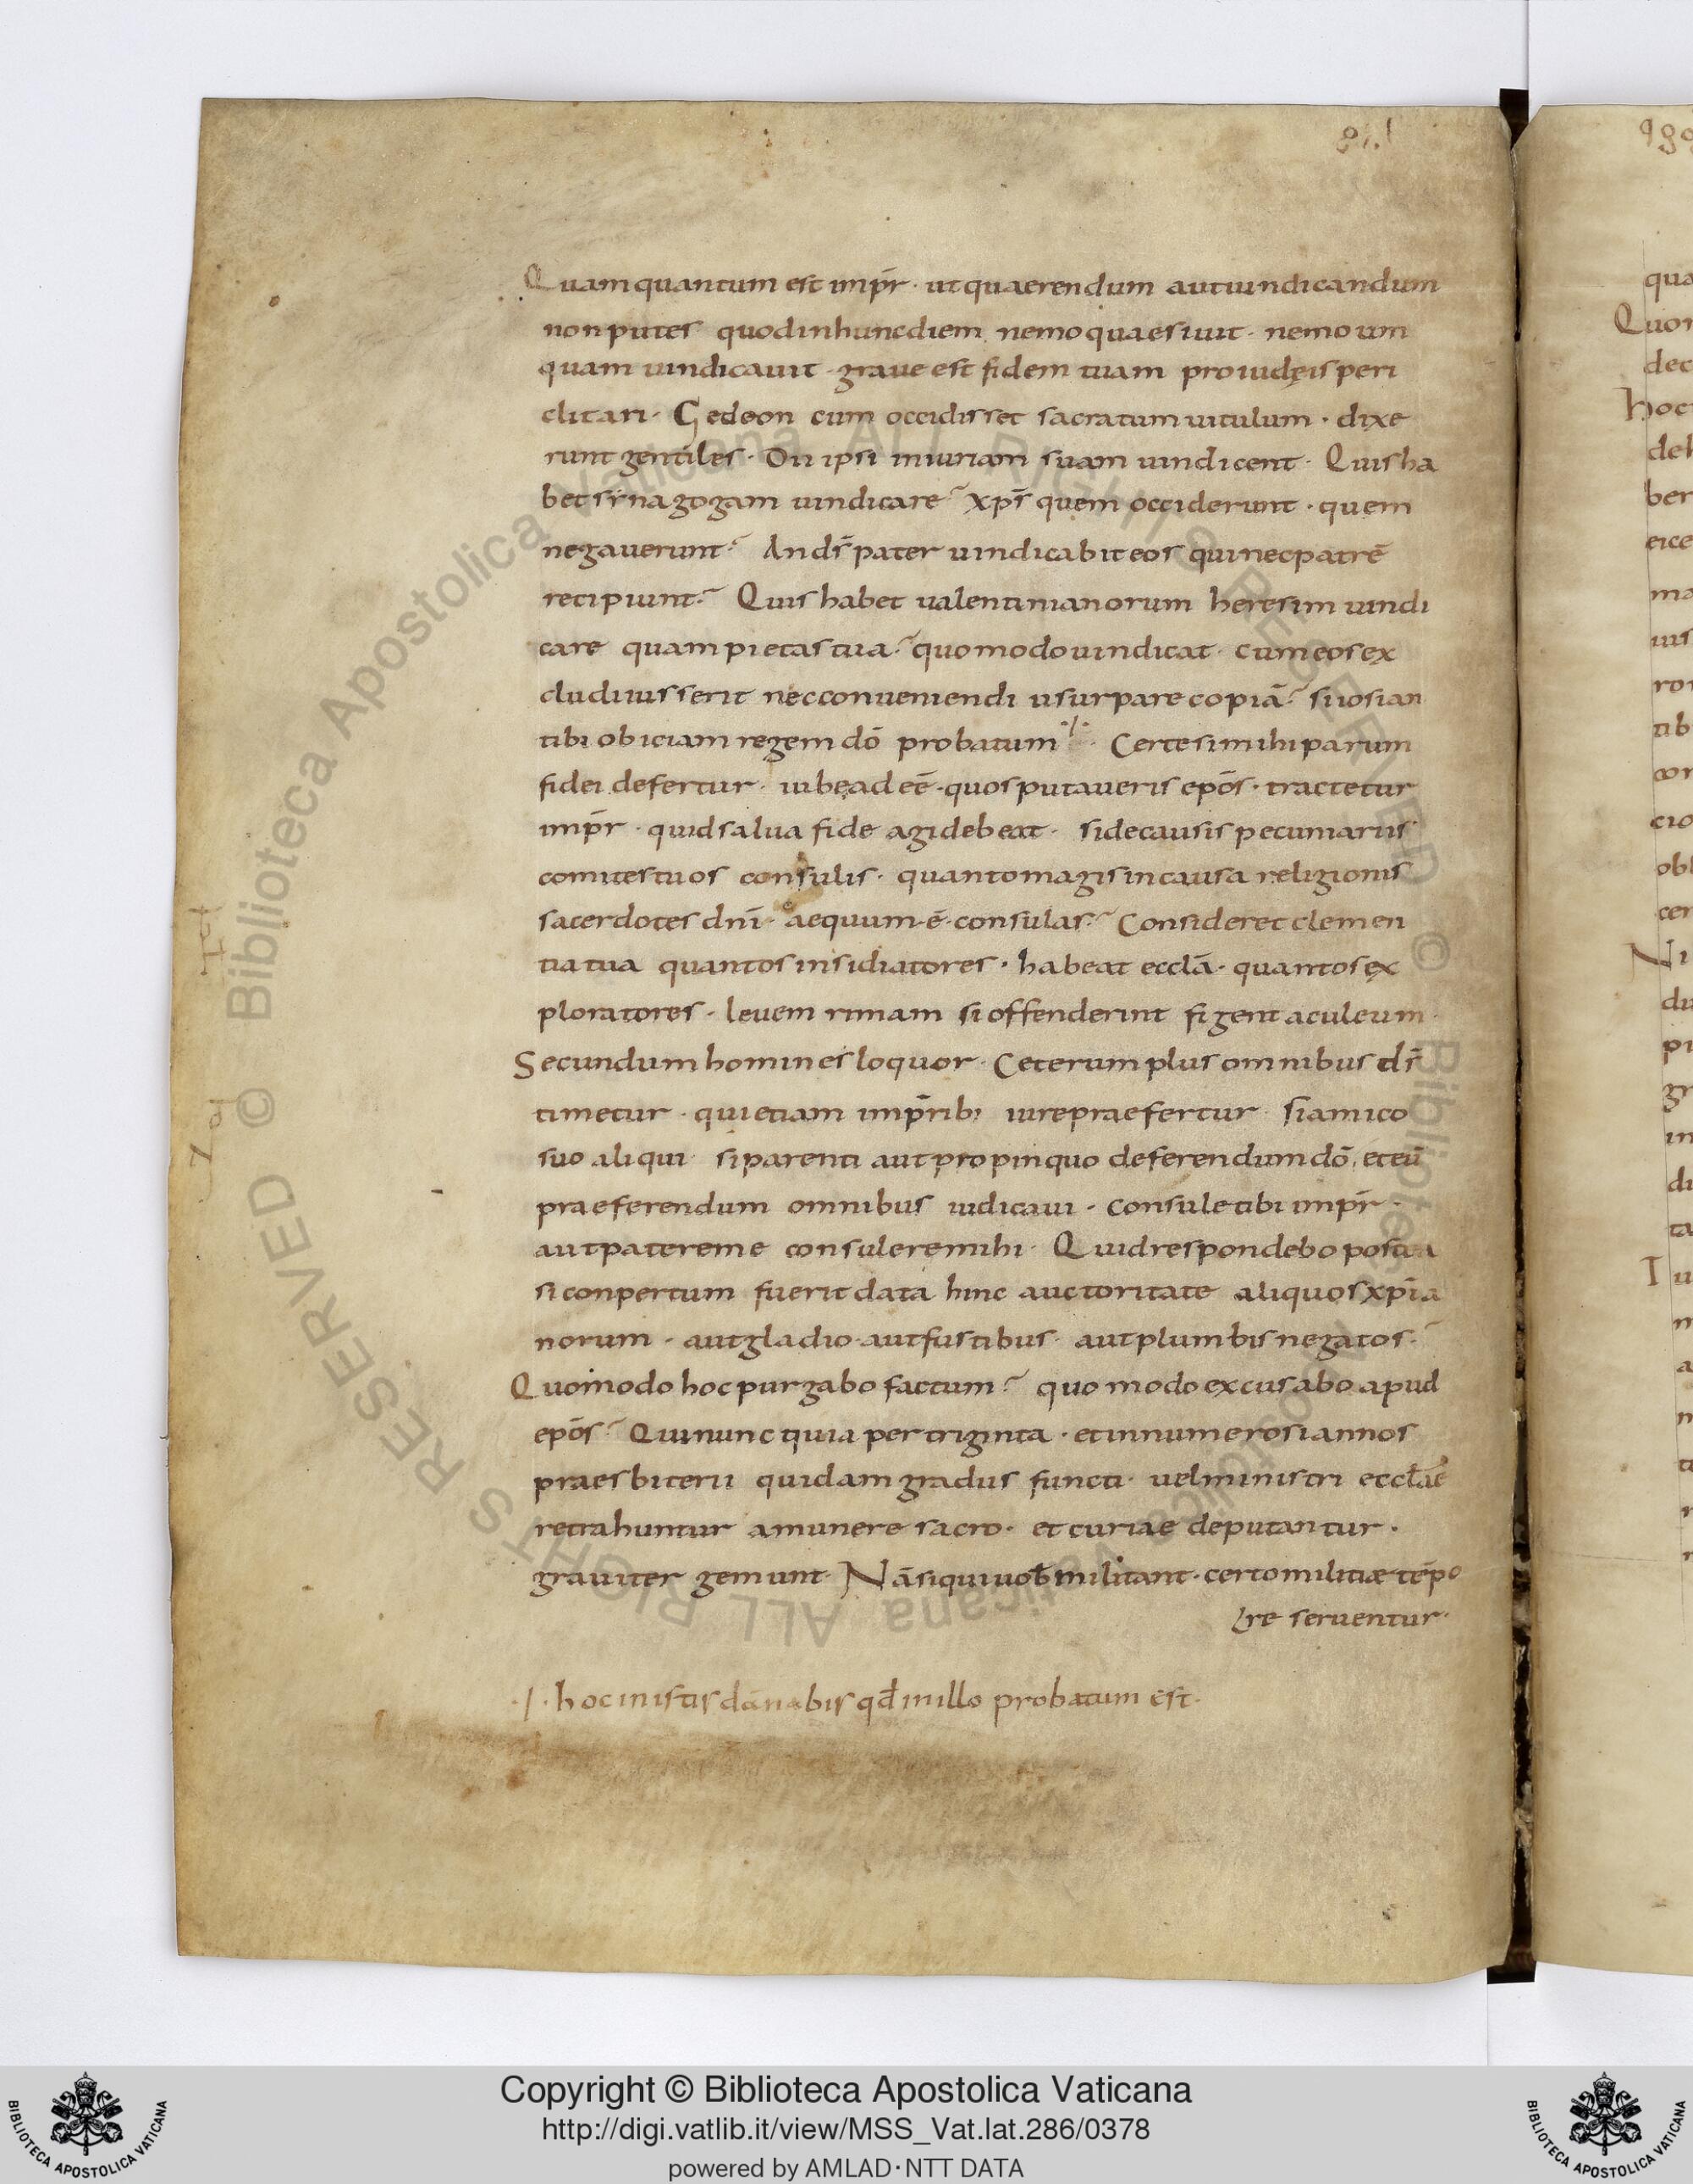 Quam quantum est imp̄r · ut quaerendum aut uindicandum
non putes quod in hunc diem nemo quaesiuit · nemo um
quam uindicauit · graue est fidem tuam pro iudęis peri
clitari · Gedeon cum occidisset sacratum uitulum · dixe
runt gentiles · Dii ipsi iniuriam suam uindicent · Quis ha
bet synagogam uindicare? xp̄s quem occiderunt · quem
negauerunt? An d̄s pater uindicabit eos qui nec patrē
recipiunt? Quis habet ualentinianorum heresim uindi
care quam pietas tua? quomodo uindicat · cum eos ex
cludi iusserit nec conueniendi usurpare copiā? si iosian
tibi obiciam regem dō probatum ·/· Certe si mihi parum
fidei defertur · iube adeē · quos putaueris ep̄os · tractetur
imp̄r · quid salua fide agi debeat · si de causis pecuniariis
comites tuos consulis · quanto magis in causa religionis
sacerdotes dn̄i · aequum · ē · consulas? Consideret clemen
tia tua quantos insidiatores · habeat ecclā · quantos ex
ploratores · leuem rimam si offenderint figent aculeum ·
Secundum homines loquor · Ceterum plus omnibus d̄s
timetur · qui etiam imp̄rib; iure praefertur · si amico
suo aliqui · si parenti aut propinquo deferendum dō, et eū
praeferendum omnibus iudicaui · consule tibi imp̄r ·
aut patere me consulere mihi · Quid respondebo postea
si conpertum fuerit data hinc auctoritate aliquos xp̄ia
norum · aut gladio · aut fustibus · aut plumbis negatos?
Quomodo hoc purgabo factum? quomodo excusabo apud
ep̄os? Qui nunc quia per triginta · et innumerosi annos
praesbiterii quidam gradus functi · uel ministri eccłae
retrahuntur a munere sacro · et curiae deputantur ·
grauiter gemunt · Nā si qui uob̄ militant · certo militiæ tēpo
re seruentur ·
·/· hoc in istis dānabis qđ in illo probatum est ·
Copyright © Biblioteca Apostolica Vaticana
http://digi.vatlib.it/view/MSS_Vat.lat.286/0378
powered by AMLAD·NTT DATA
BIBLIOTECA APOSTOLICA VATICANA
BIBLIOTECA APOSTOLICA VATICANA
© Biblioteca Apostolica Vaticana ALL RIGHTS RESERVED © Biblioteca Apostolica Vaticana ALL RIGHTS RESERVED